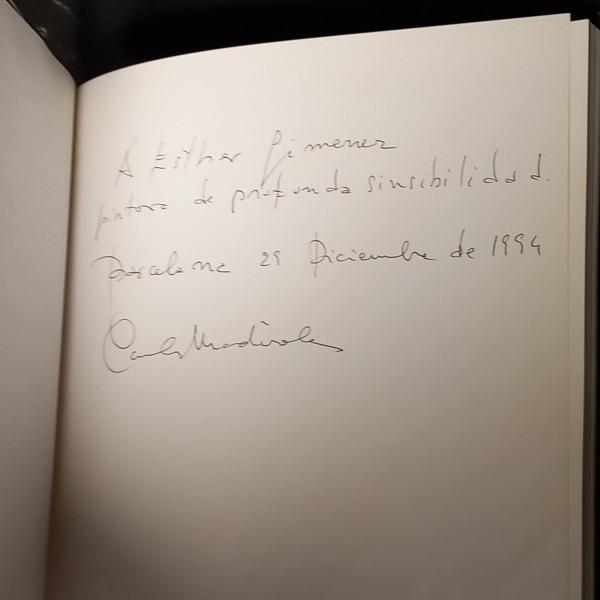 A Esther Gimenez
pintora de profunda sinsibilidad.
Barcelona 29 Diciembre de 1994
Carles Madirolas